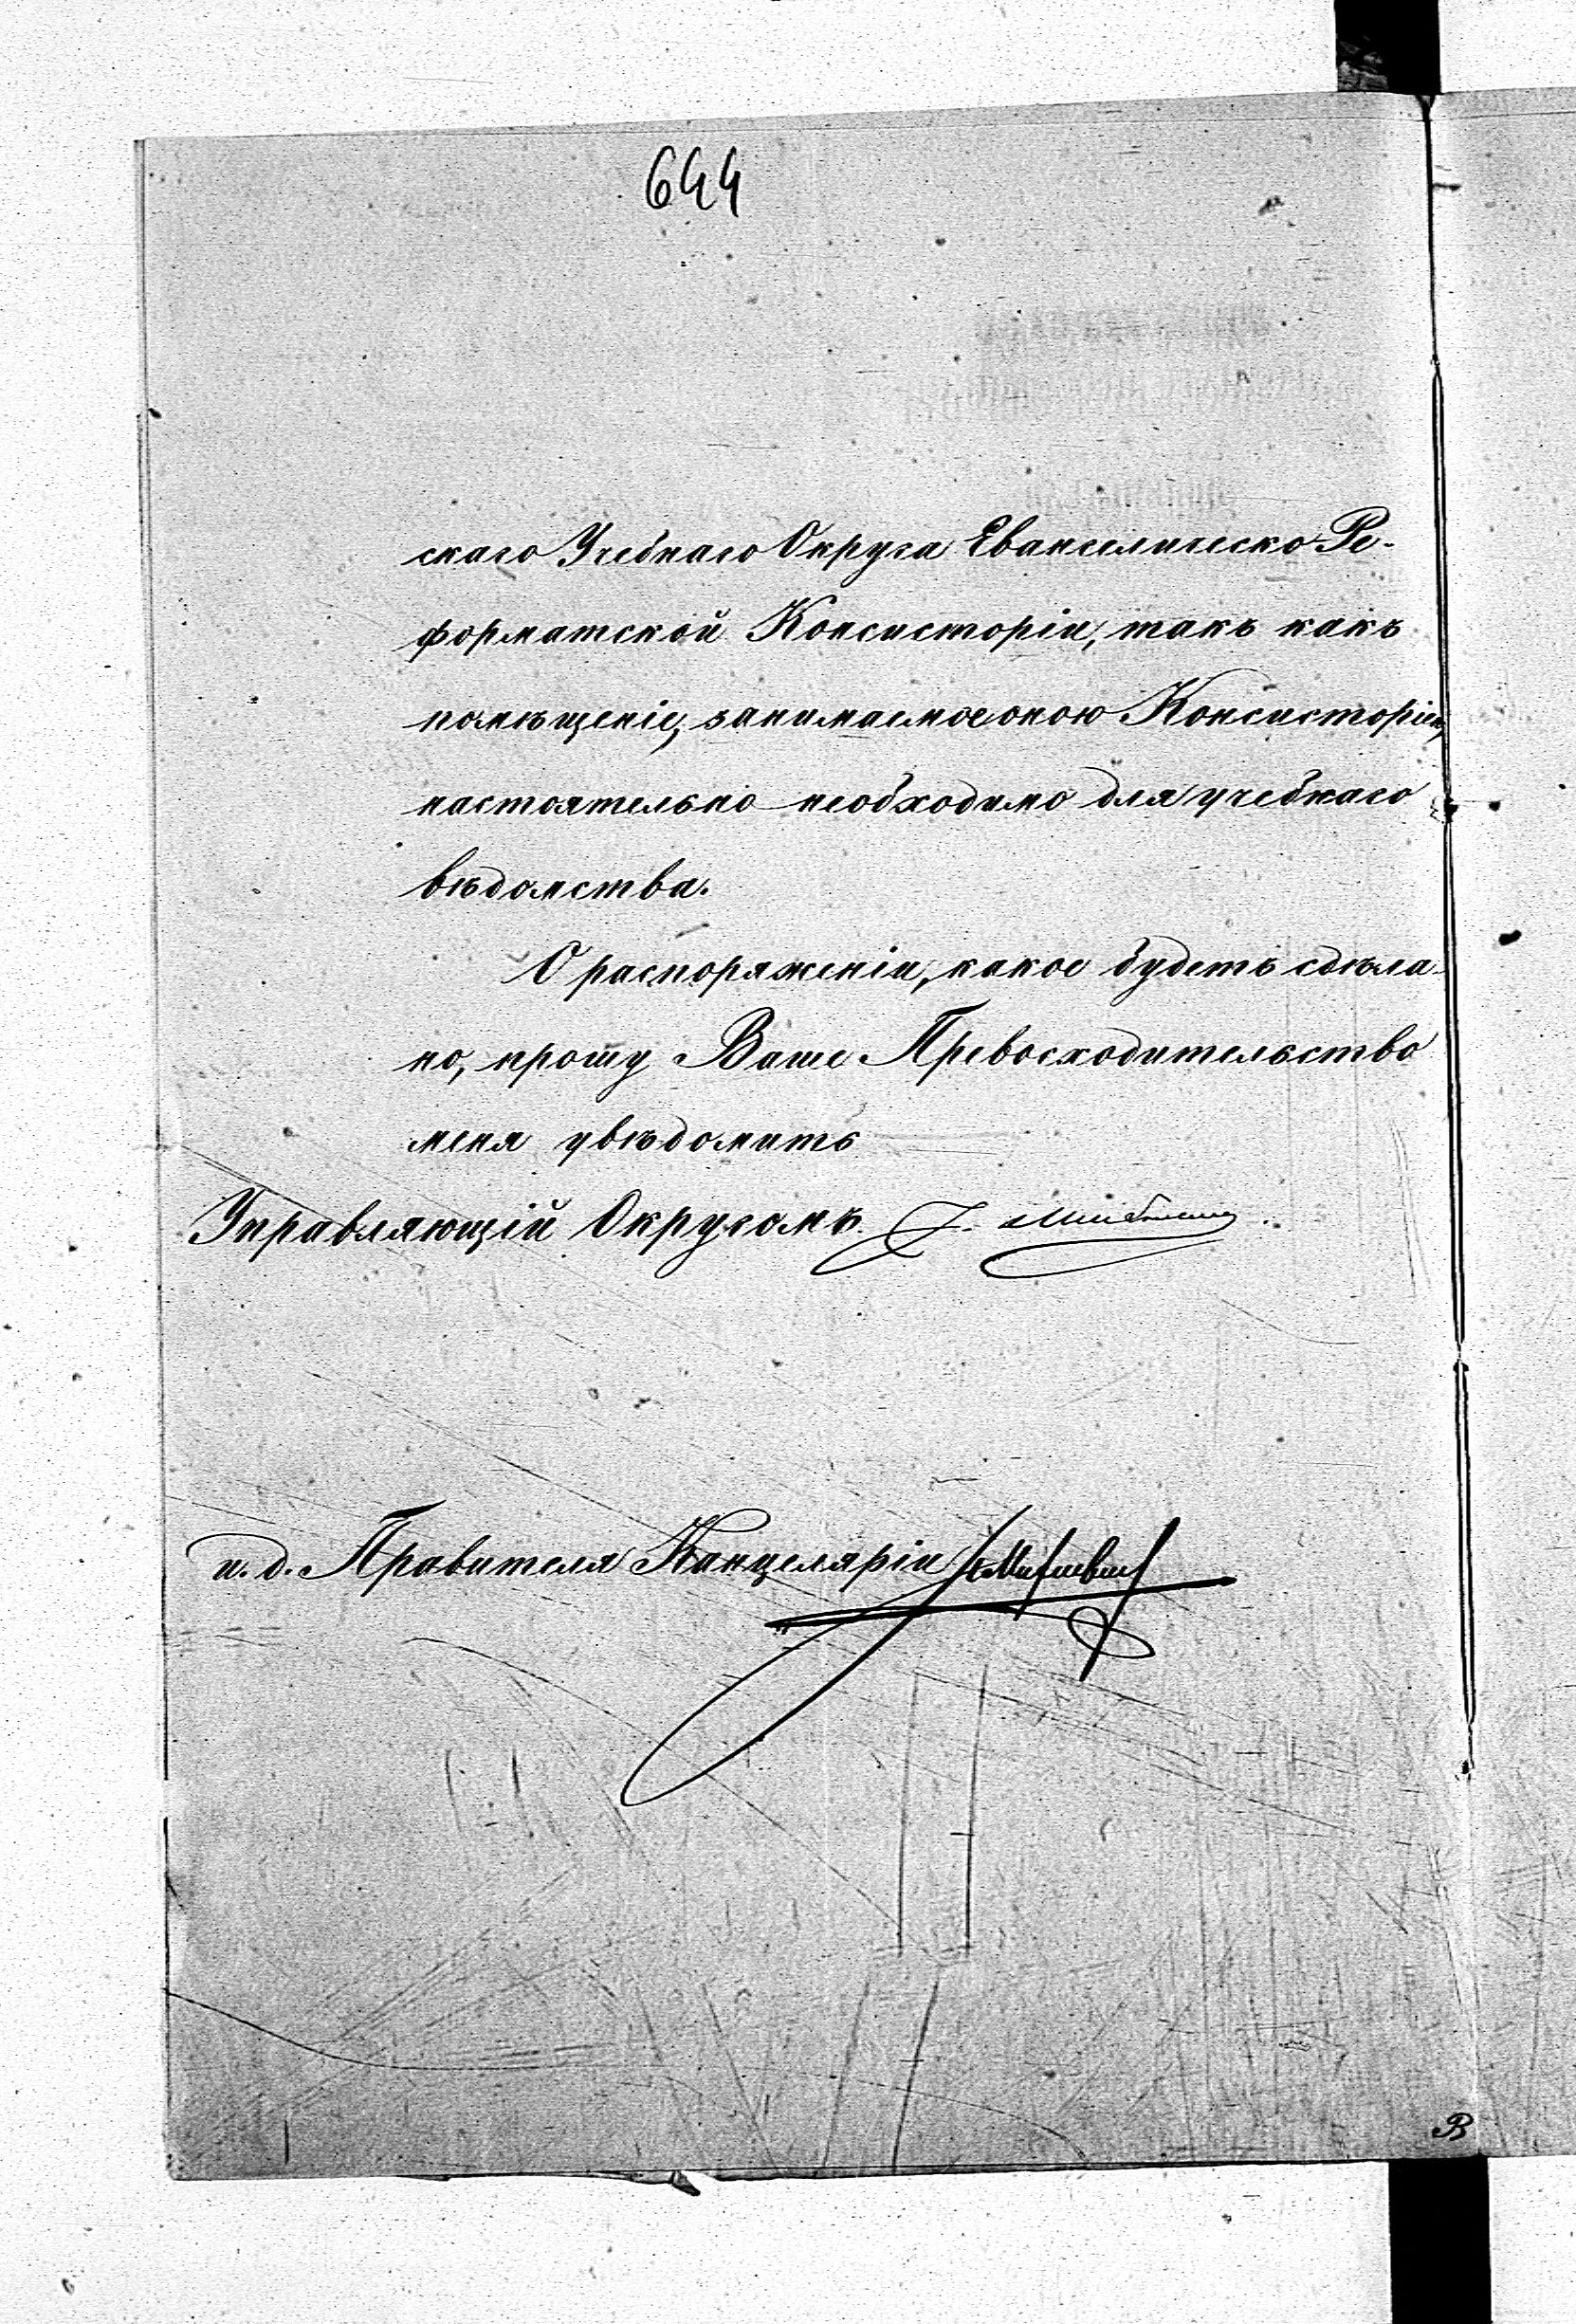 644
скаго Учебнаго Округа Евангелическо-Ре-
форматской Консисторіи, такъ какъ
помѣщеніе, занимаемое оною Консисторіею,
настоятельно необходимо для учебнаго
вѣдомства.
О распоряженіи, какое будетъ сдѣла-
но, прошу Ваше Превосходительство
меня увѣдомить
Управляющій Округомъ
и. д. Правителя Канцеляріи